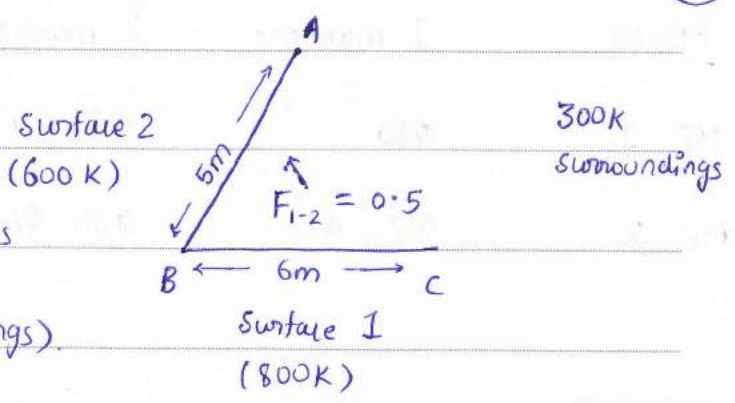 A
Surface 2
(600 K)
5m
300K
surroundings
F1-2 = 0.5
s
B
6m
C
ngs).
Surface 1
(800K)